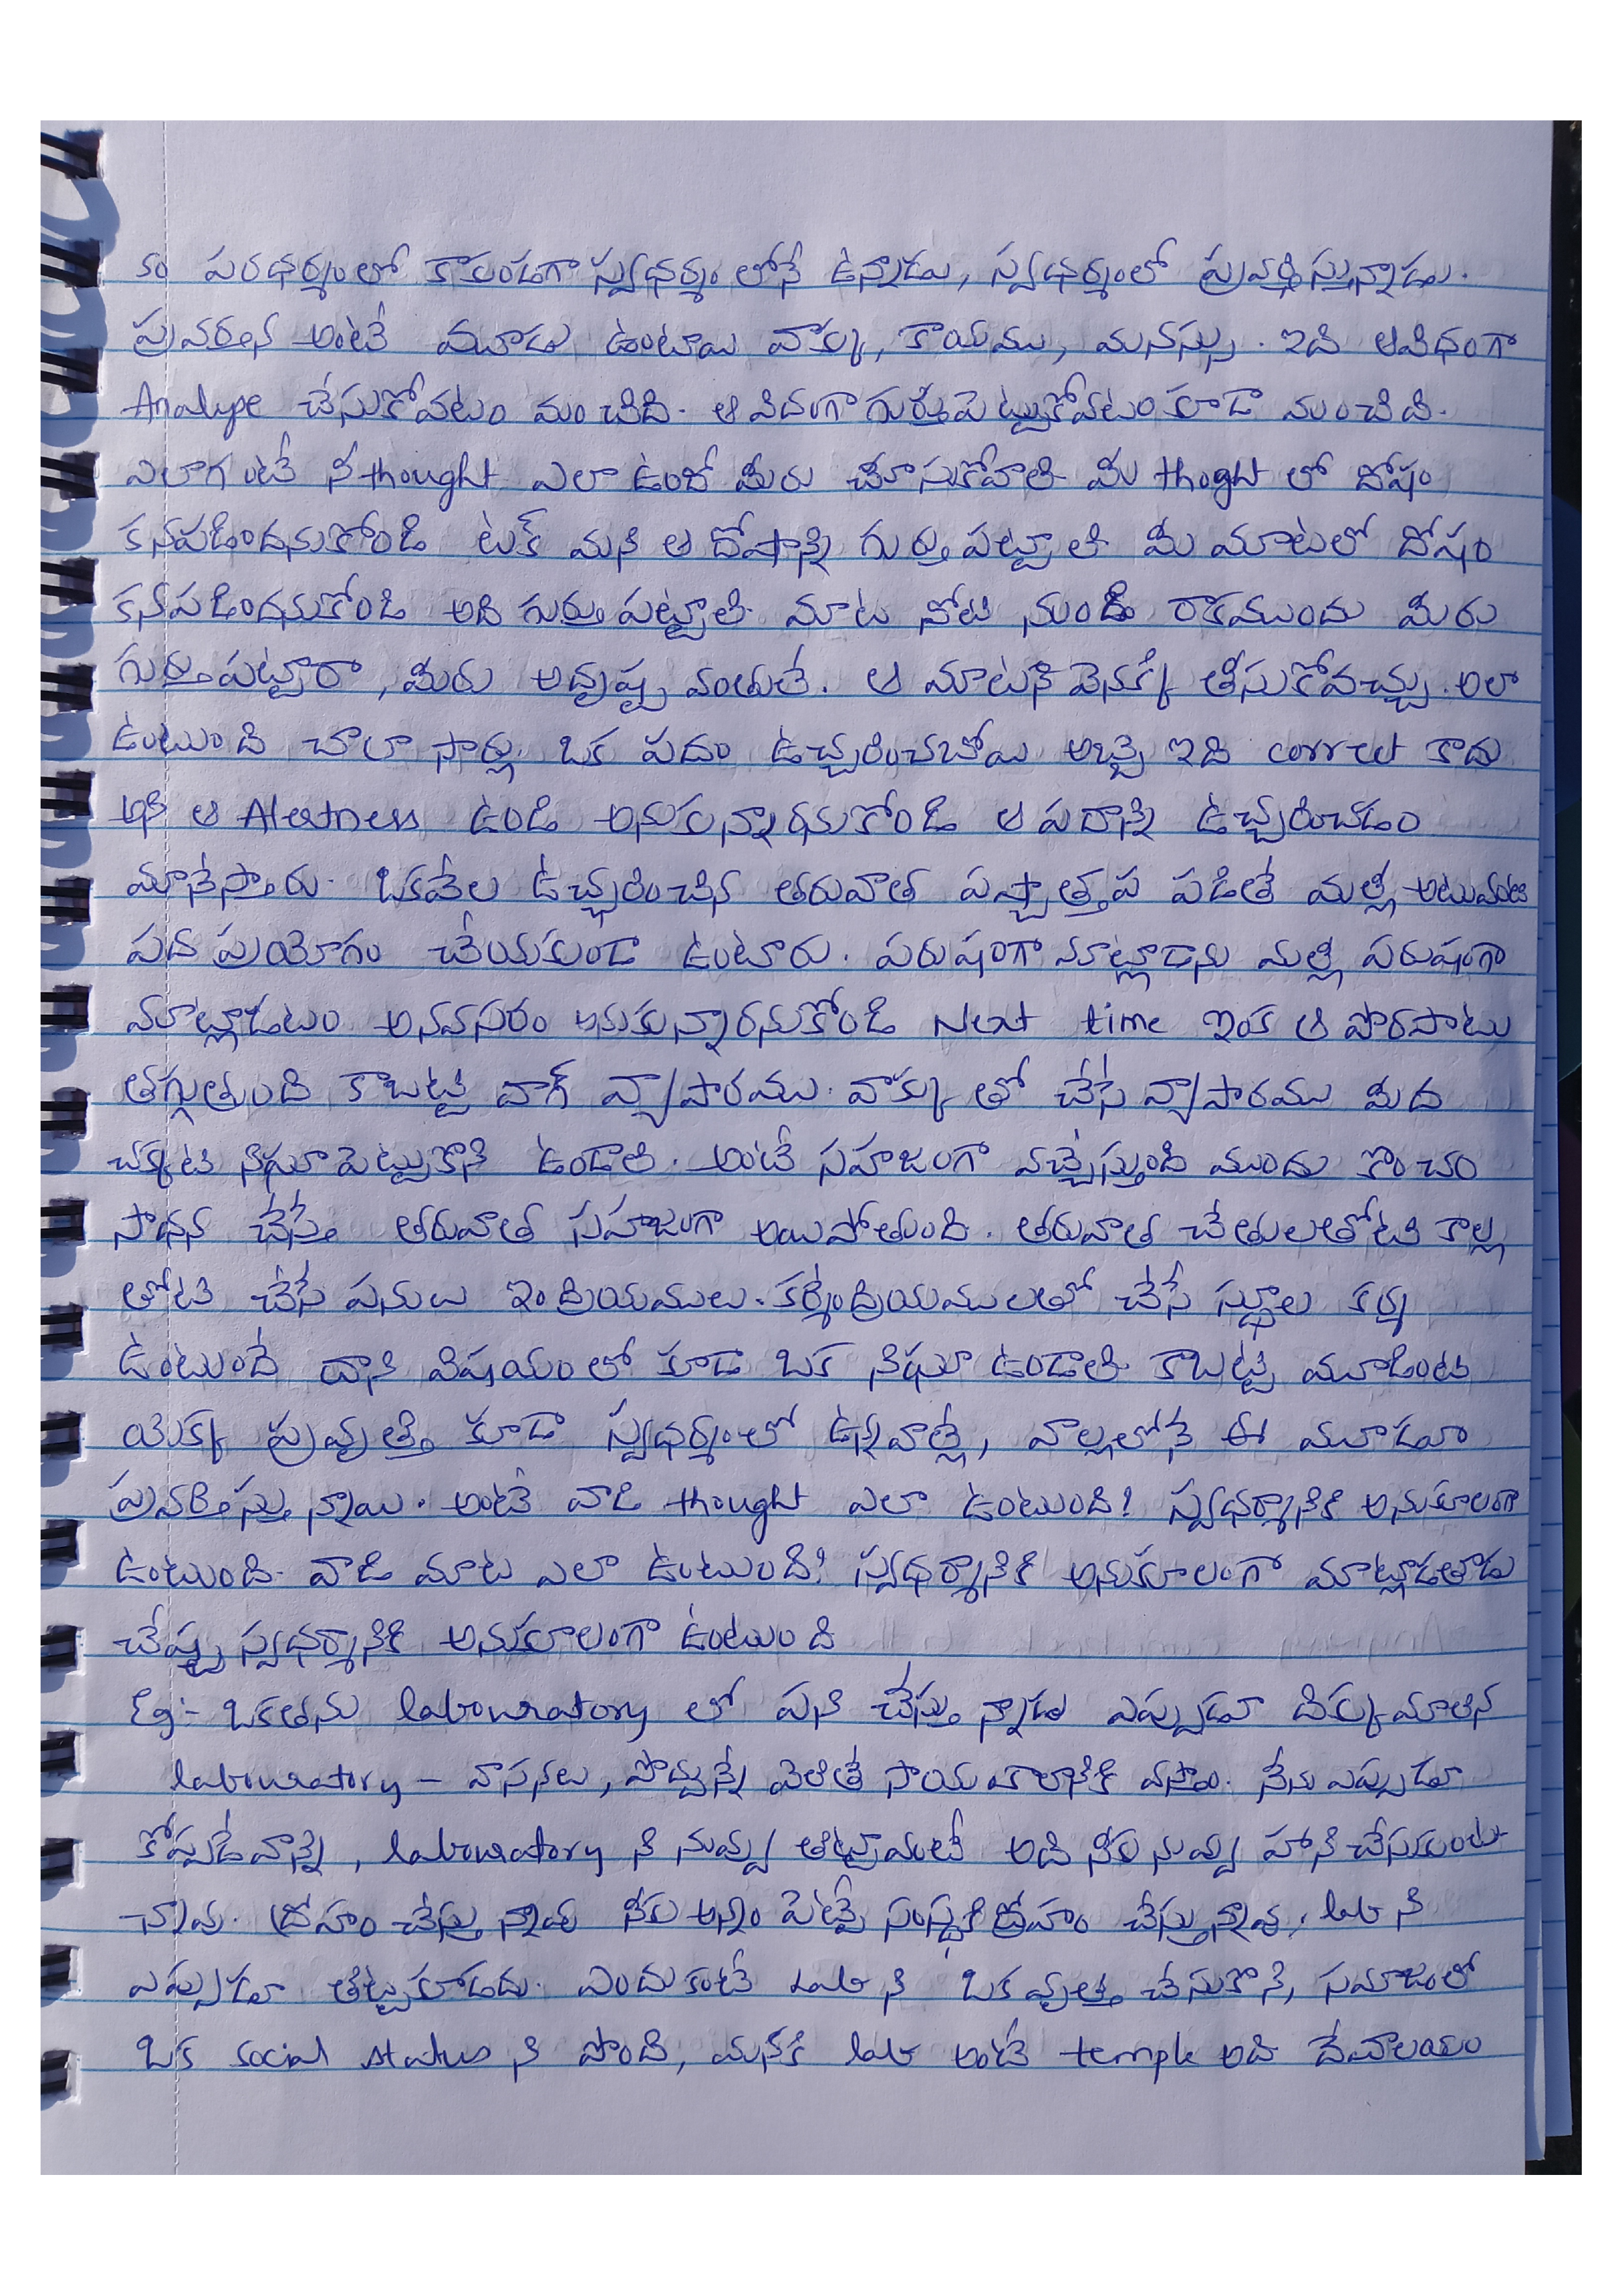 కం పరధర్మంలో కాకుండగా స్వధర్మం లోనే ఉన్నాడు, స్వధర్మంలో ప్రవర్తిస్తున్నాడు.
ప్రవర్తన అంటే మూడు ఉంటాయి వాక్కు, కాయము, మనస్సు. ఇది ఆవిధంగా
Analype చేసుకోవటం మంచిది. ఆ విదంగా గుర్తుపెట్టుకోవటం కూడా మంచిది.
ఎలాగంటే నీ thought ఎలా ఉందో మీరు చూసుకోవాలి మీ thoght లో దోషం
కనపడిందనుకోండి టక్ మని ఆ దోషాన్ని గుర్తు పట్టాలి. మీ మాటలో దోషం
కనపడిందనుకోండి అది గుర్తు పట్టాలి. మాట నోటి నుండి రాకముందు మీరు
గుర్తుపట్టారా, మీరు అదృష్ట వంతులే. ఆ మాటని వెనక్కి తీసుకోవచ్చు. అలా
ఉంటుంది చాలా సార్లు. ఒక పదం ఉచ్చరించబోయి అబ్బె ఇది correct కాదు
అని ఆ Alertness ఉండి అనుకున్నారనుకోండి ఆ పదాన్ని ఉచ్చరించడం
మానేస్తారు. ఒకవేల ఉచ్చరించిన తరువాత పశ్చాత్తప పడితే మళ్లీ అటువంటి
పద ప్రయోగం చేయకుండా ఉంటారు. పరుషంగా మాట్లాడాను మళ్లీ పరుషంగా
మాట్లాడటం అనవసరం అనుకున్నారనుకోండి Next time ఇంక ఆ పొరపాటు
తగ్గుతుంది కాబట్టి వాగ్ వ్యాపారము. వాక్కు తో చేసే వ్యాపారము మీద
చక్కటి నిఘా పెట్టుకొని ఉండాలి. అంటే సహజంగా వచ్చేస్తుంది ముందు కొంచం
సాధన చేస్తే తరువాత సహజంగా అయిపోతుంది. తరువాత చేతులతోటి కాళ్ల
తోటి చేసే పనులు ఇంద్రియములు. కర్మేంద్రియములతో చేసే స్థూల కర్మ
ఉంటుందే దాని విషయం లో కూడ ఒక నిఘా ఉండాలి. కాబట్టి మూడింటి
యొక్క ప్రవృత్తి కూడా స్వధర్మంలో ఉన్నవాళ్లే, వాల్లలోనే ఈ మూడూ
ప్రవర్తిస్తున్నాయి. అంటే వాడి thought ఎలా ఉంటుంది! స్వధర్మానికి అనుకూలంగా
ఉంటుంది. వాడి మాట ఎలా ఉంటుంది! స్వధర్మానికి అనుకూలంగా మాట్లాడతాడు
చేష్ట స్వధర్మానికి అనుకూలంగా ఉంటుంది
Eg:- ఒకతను labouratory లో పని చేస్తున్నాడు ఎప్పుడూ దిక్కుమాలిన
labouratory - వాసనలు, పొద్దున్నే వెలితే సాయంకాలానికి వస్తాం. నేను ఎప్పుడూ
కోప్పడేవాన్ని, labouratory ని నువ్వు తిట్టావంటే అది నీకు నువ్వు హాని చేసుకుంటు
న్నావు. ద్రోహం చేస్తున్నావ్ నీకు అన్నం పెట్టే సంస్థకి ద్రోహం చేస్తున్నావు, lab ని
ఎప్పుడూ తిట్టకూడదు. ఎందుకంటే Lab ని ఒక వృత్తి చేసుకొని, సమాజంలో
ఒక social status ని పొంది, మనకి lab అంటే temple అది దేవాలయం